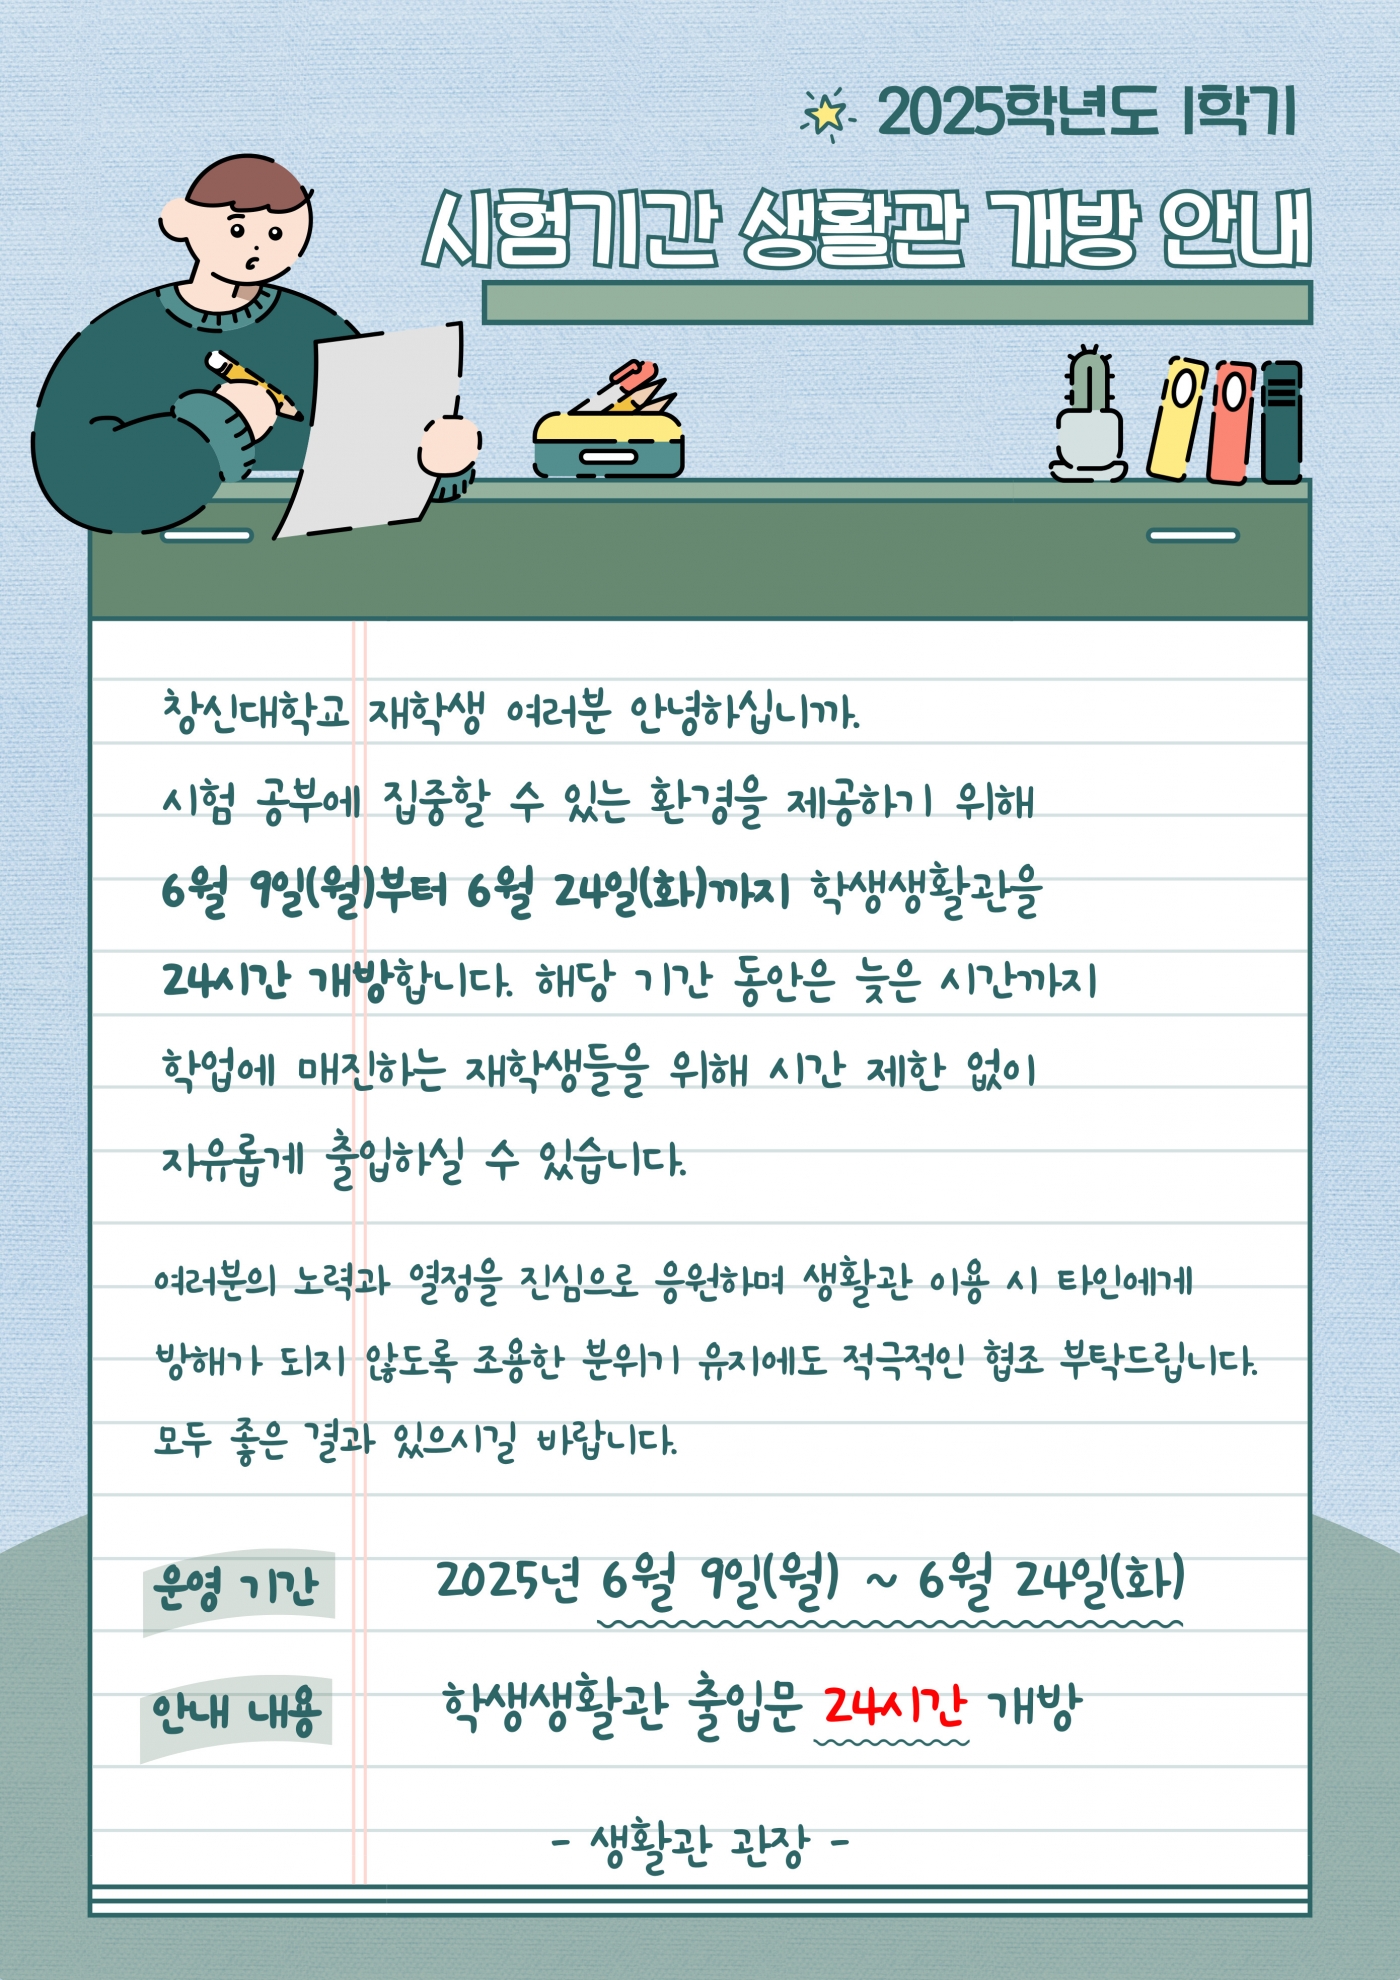 2025학년도 1학기
시험기간 생활관 개방 안내
창신대학교 재학생 여러분 안녕하십니까.
시험 공부에 집중할 수 있는 환경을 제공하기 위해
6월 9일(월)부터 6월 24일(화)까지 학생생활관을
24시간 개방합니다. 해당 기간 동안은 늦은 시간까지
학업에 매진하는 재학생들을 위해 시간 제한 없이
자유롭게 출입하실 수 있습니다.
여러분의 노력과 열정을 진심으로 응원하며 생활관 이용 시 타인에게
방해가 되지 않도록 조용한 분위기 유지에도 적극적인 협조 부탁드립니다.
모두 좋은 결과 있으시길 바랍니다.
운영 기간 2025년 6월 9일(월) ~ 6월 24일(화)
안내 내용 학생생활관 출입문 24시간 개방
- 생활관 관장 -